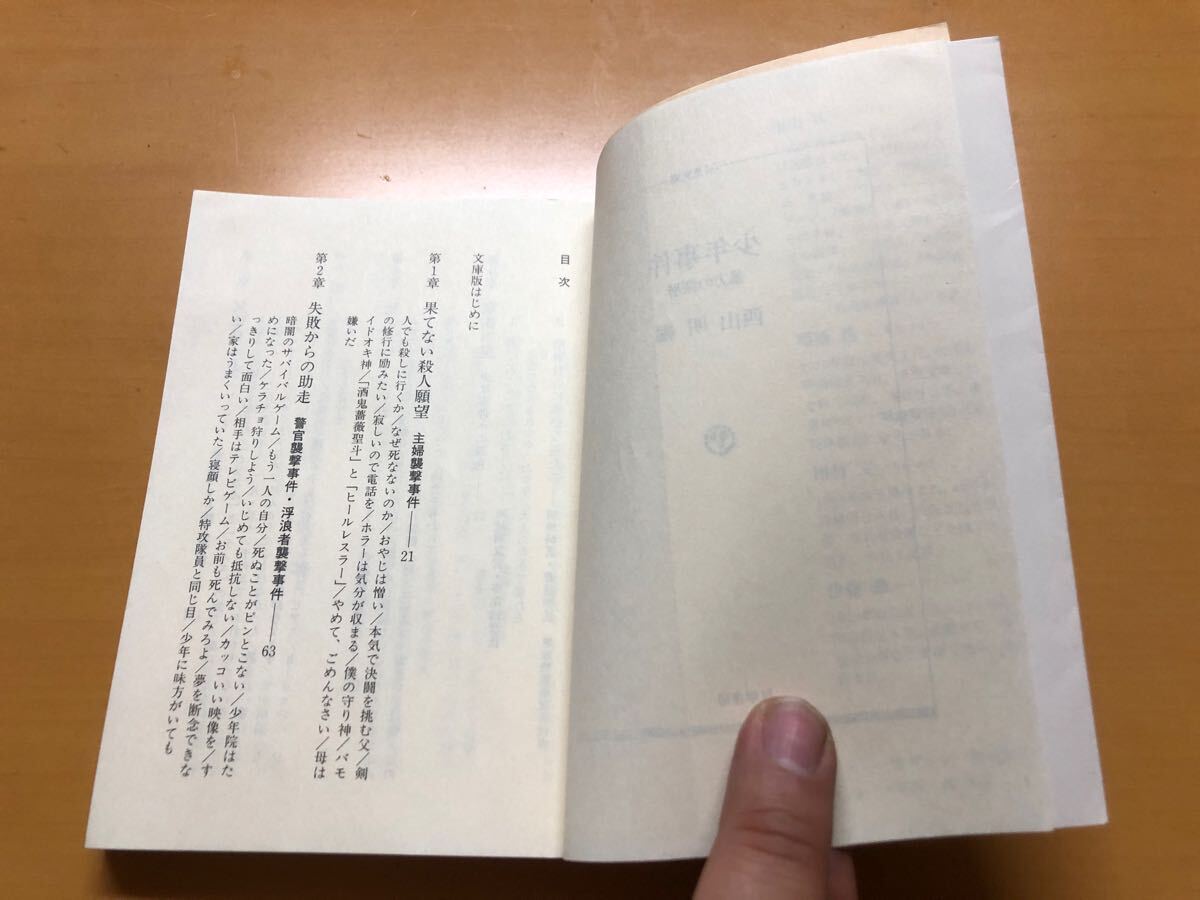 目次
文庫版はじめに
第1章 果てない殺人願望 主婦襲撃事件――21
人でも殺しに行くか/なぜ死なないのか/おやじは憎い/本気で決闘を挑む父/剣
の修行に励みたい/寂しいので電話を/ホラーは気分が収まる/僕の守り神/バモ
イドオキ神/「酒鬼薔薇聖斗」と「ヒールレスラー」/やめて、ごめんなさい/母は
嫌いだ
第2章 失敗からの助走 警官襲撃事件・浮浪者襲撃事件――63
暗闇のサバイバルゲーム/もう一人の自分/死ぬことがピンとこない/少年院はた
めになった/ケラチョ狩りしよう/いじめても抵抗しない/カッコいい映像を/す
っきりして面白い/相手はテレビゲーム/お前も死んでみろよ/夢を断念できな
い/家はうまくいっていた/寝顔しか/特攻隊員と同じ目/少年に味方がいても
少年事件
西山明